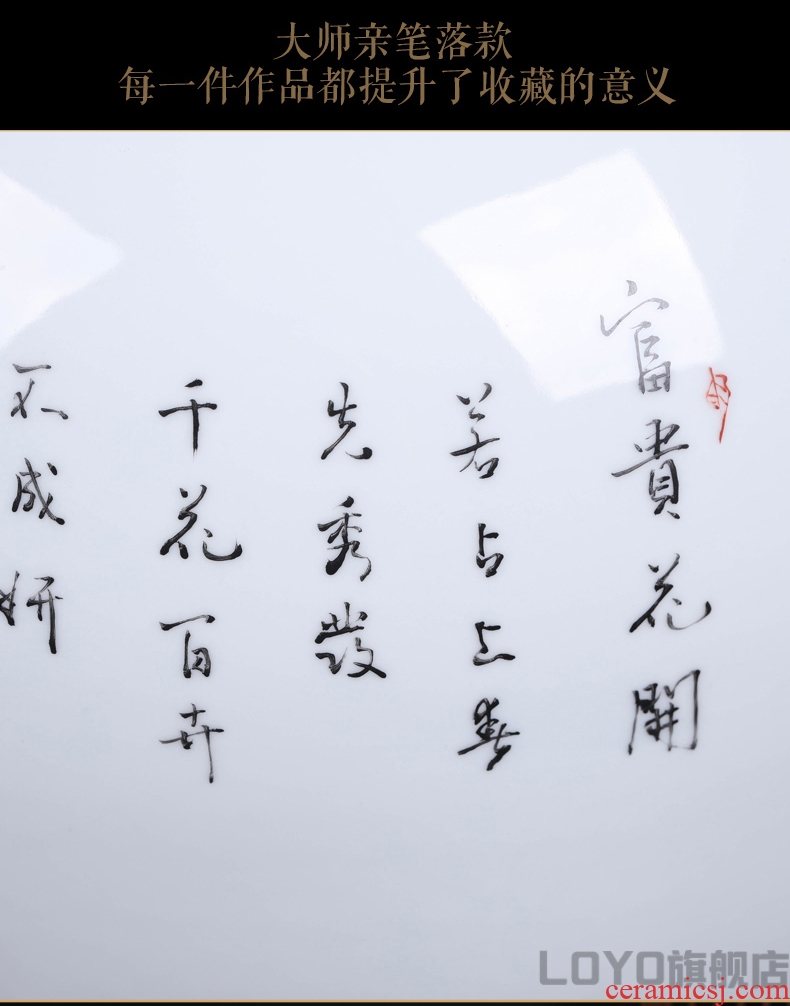 大师亲笔落款
每一件作品都提升了收藏的意义
富貴花開
若占上春
先秀發
千花百卉
不成妍
LOYO旗舰店
ceramicsj.com